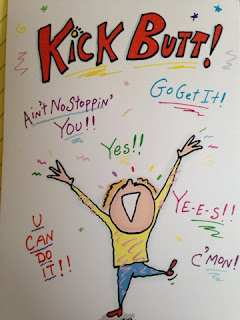 KICK BUTT!
Go Get It!
Ain't No Stoppin'
YOU!!
Yes!!
YE-E-S!!
U
CAN
DO
IT!!
C'MON!